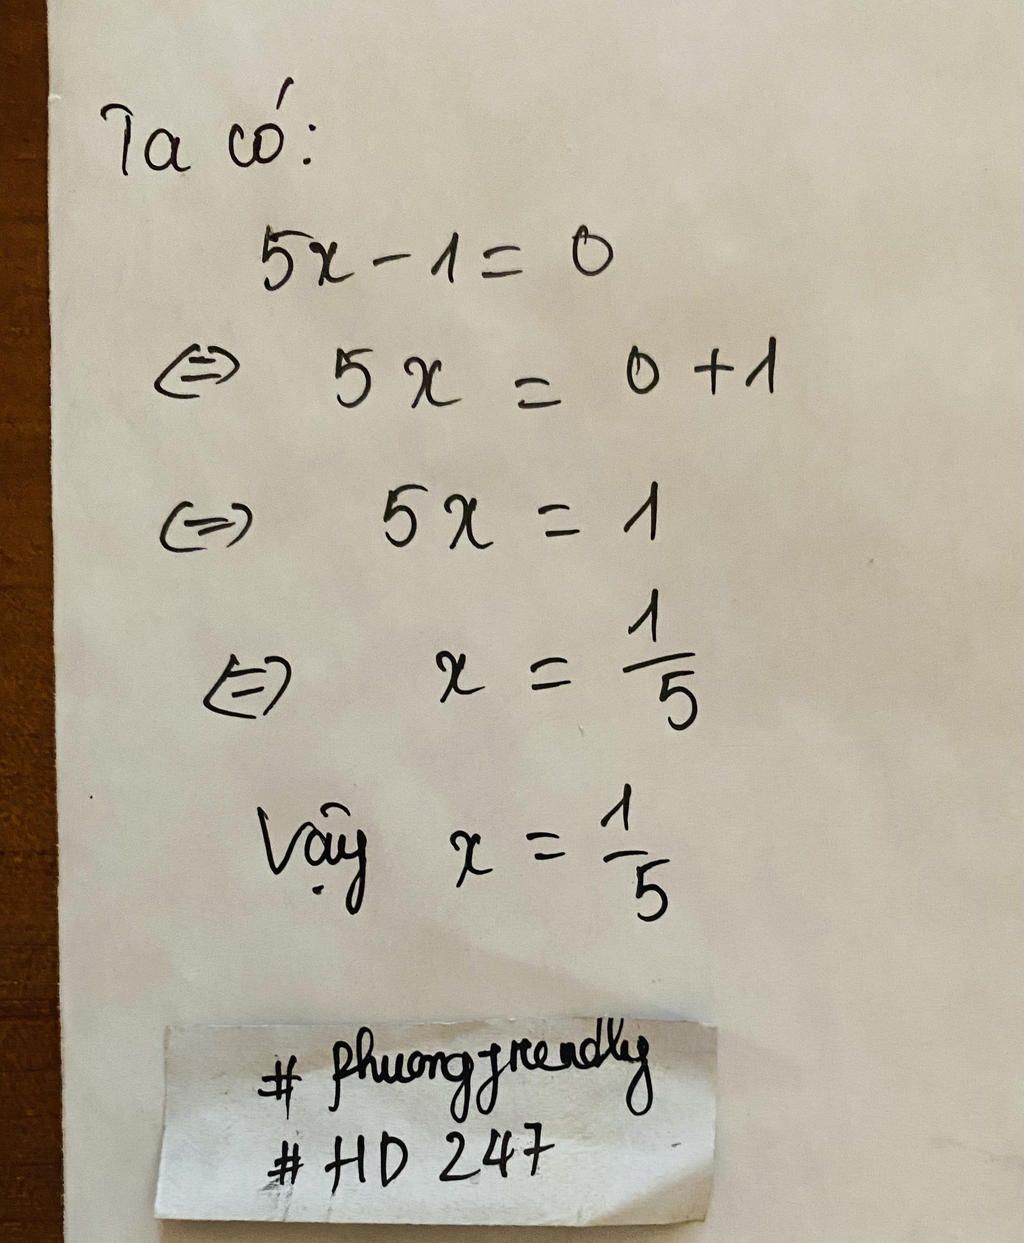 Ta có:
5x - 1 = 0
⇔ 5x = 0 + 1
⇔ 5x = 1
⇔ x = 1/5
Vậy x = 1/5
# Phuongfriendly
# HD 247